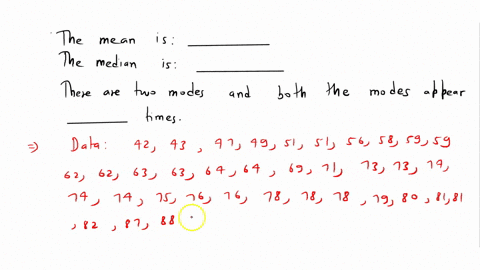 The mean is: ________
The median is: ________
There are two modes and both the modes appear
________ times.
⇒ Data: 42, 43, 47, 49, 51, 51, 56, 58, 59, 59
62, 62, 63, 63, 64, 64, 69, 71, 73, 73, 74,
74, 74, 75, 76, 76, 78, 78, 78, 79, 80, 81, 81
, 82, 87, 88